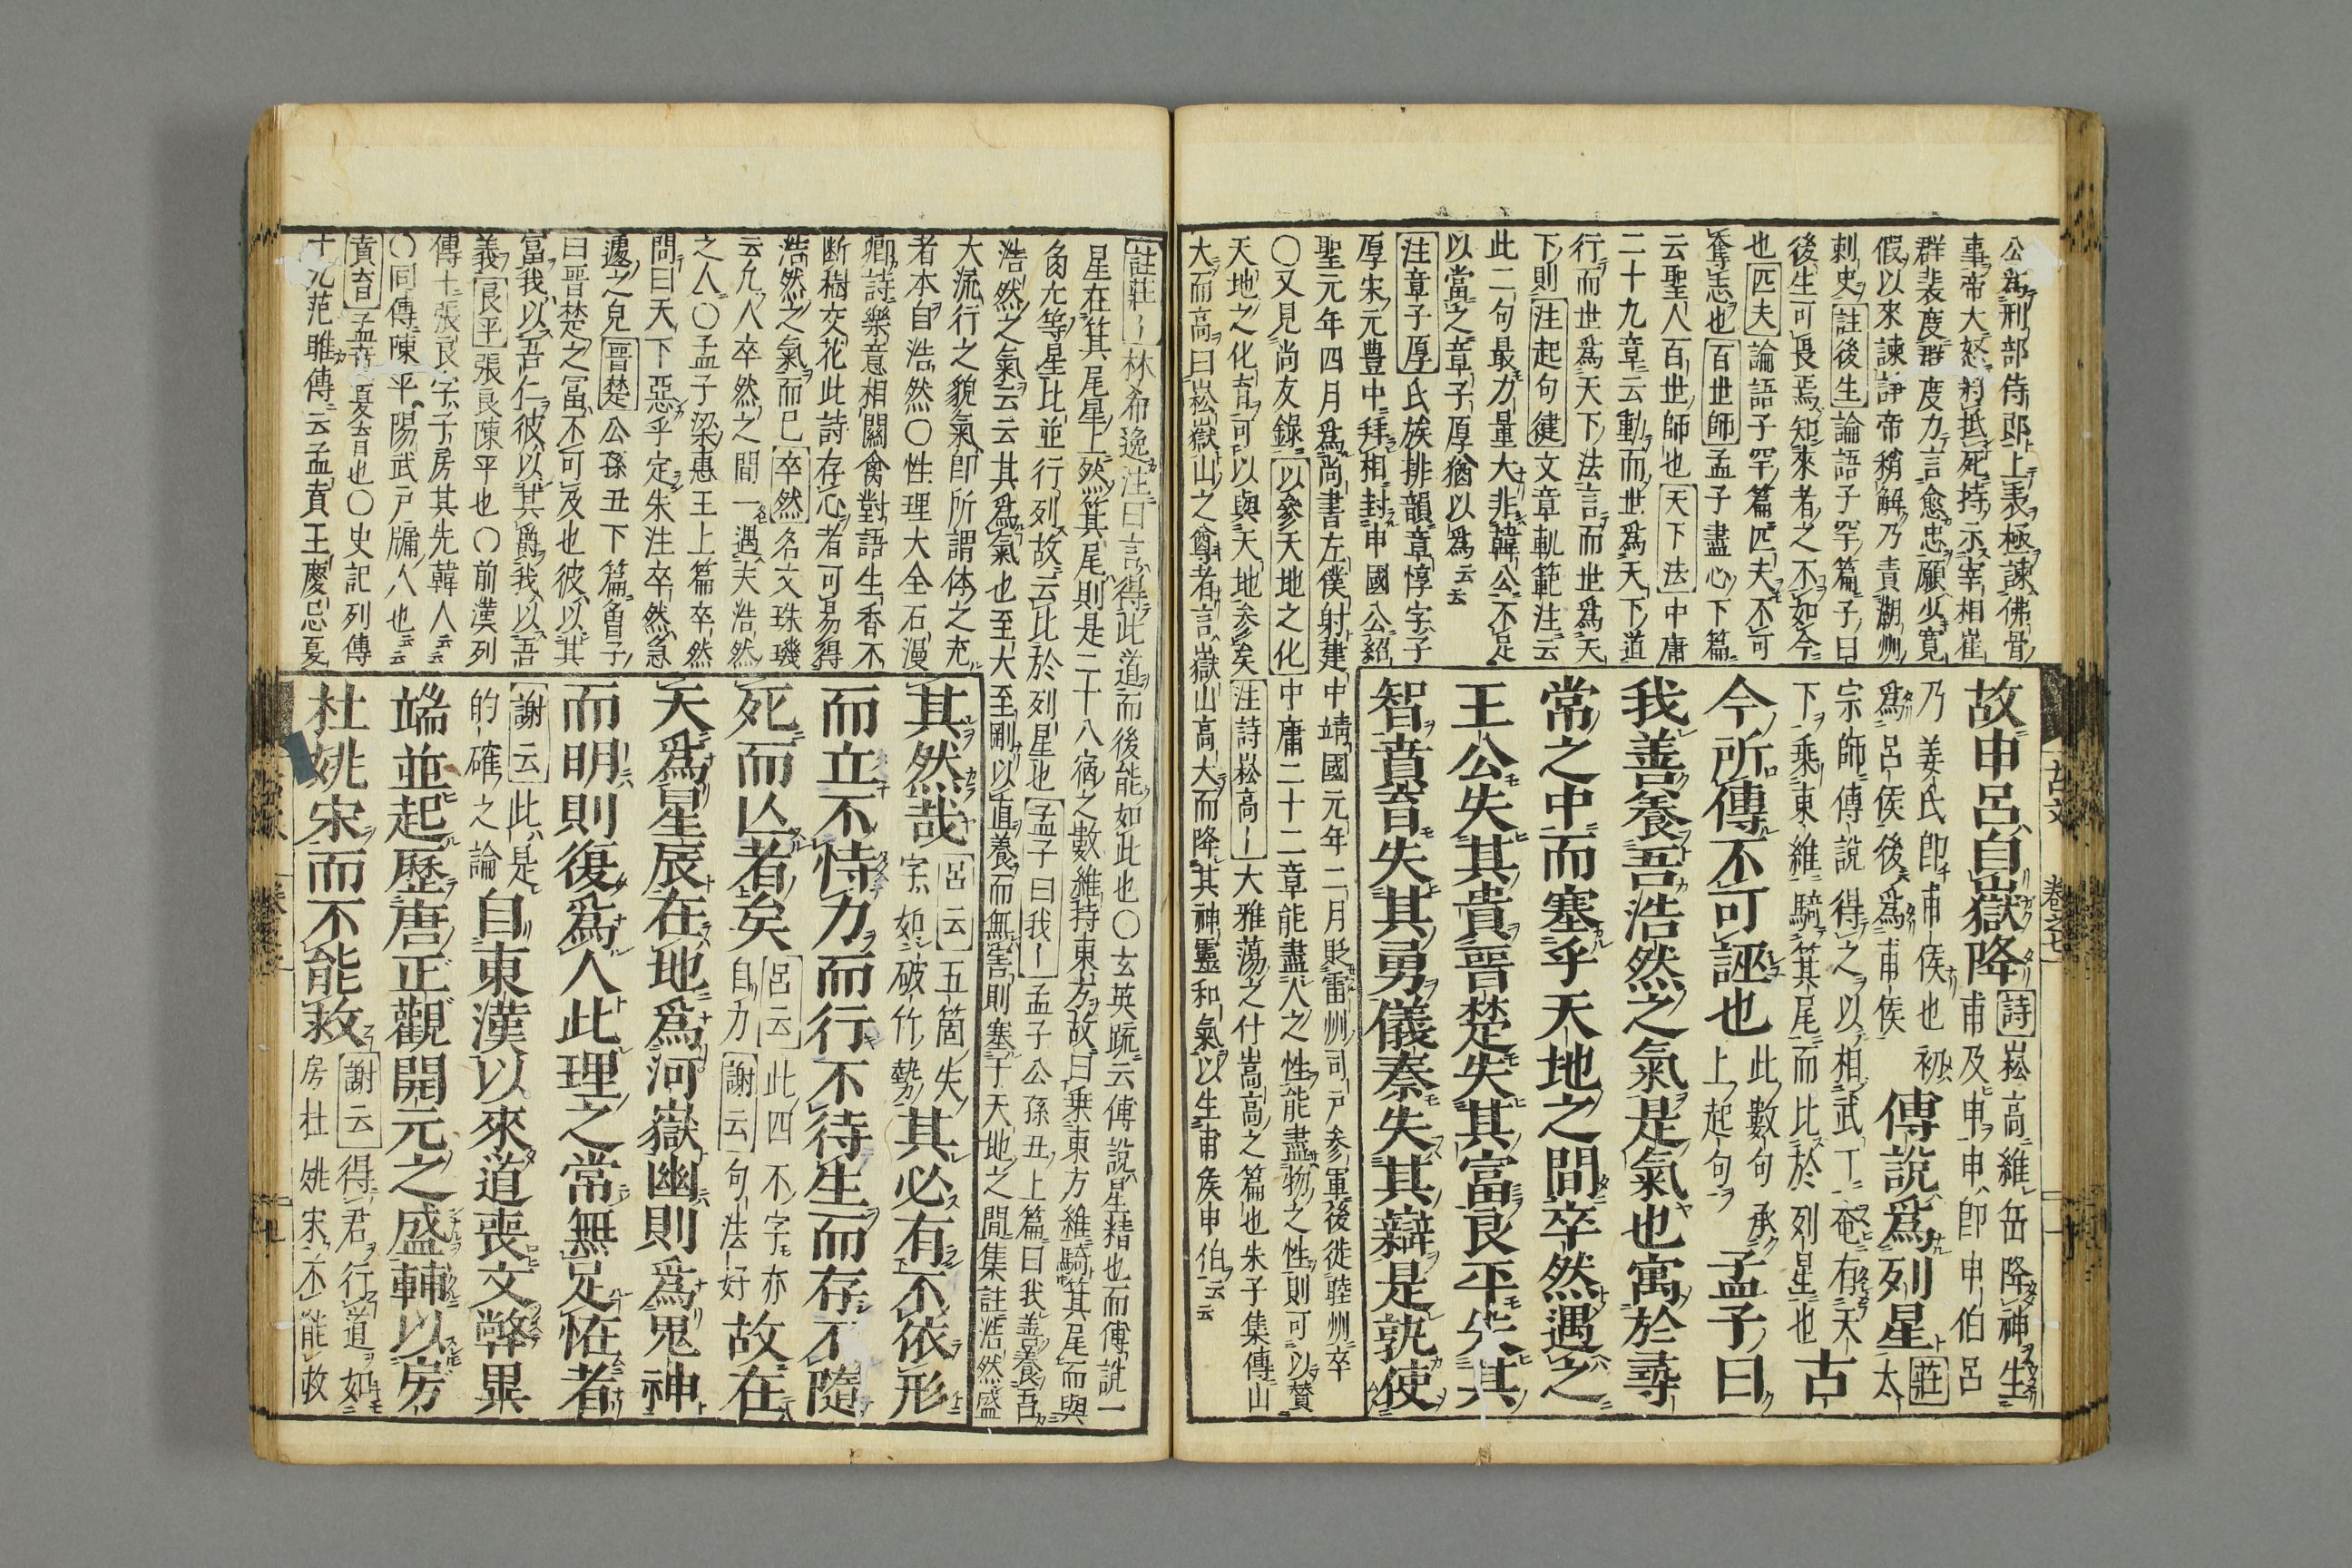 公爲刑部侍郎上表極諫佛骨
事帝大怒將抵死持示宰相崔
群裴度群度力言愈忠願少寛
假以來諫諍帝稍解乃責潮州
刺史註後生論語子罕篇子曰
後生可畏焉知來者之不如今
也匹夫論語子罕篇匹夫不可
奪志也百世師孟子盡心下篇
云聖人百世師也天下法中庸
二十九章云動而世爲天下道
行而世爲天下法言而世爲天
下則注起句健文章軌範注云
此二句最力量大非韓公不足
以當之章子厚猶以爲云云
注章子厚氏族排韻章惇字子
厚宋元豊中拜相封申國公紹
聖元年四月爲尚書左僕射建中靖國元年二月貶雷州司戸参軍後徙睦州卒
〇又見尚友錄以參天地之化中庸二十二章能盡人之性能盡物之性則可以賛
天地之化育可以與天地参矣注詩崧高〡大雅蕩之什嵩高之篇也朱子集傳山
大而高曰崧嶽山之尊者言嶽山高大而降其神靈和氣以生甫矦申伯云云
故申呂自嶽降詩崧高維岳降神生
甫及申申即申伯呂
乃姜氏即甫侯也
爲呂侯後爲甫侯傳說爲列星莊太
宗師傳說得之以相武丁奄有天
下乘東維騎箕尾而比於列星也古
今所傳不可誣也此數句承
上起句孟子曰
我善養吾浩然之氣是氣也寓於尋
常之中而塞乎天地之間卒然遇之
王公失其貴晉楚失其富良平失其
智賁育失其勇儀秦失其辯是孰使
古文 卷之七 十
註莊〡林希逸注曰言得此道而後能如此也〇玄英疏云傳說星精也而傳說一
星在箕尾星上然箕尾則是二十八宿之數維持東方故曰乗東方維騎箕尾而與
角亢等星比並行列故云比於列星也孟子曰我〡孟子公孫丑上篇曰我善養吾
浩然之氣云云其爲氣也至大至剛以直養而無害則塞于天地之間集註浩然盛
大流行之貌氣即所謂体之充
者本自浩然〇性理大全石漫
卿詩樂意相關禽對語生香不
断樹交花此詩存心者可易得
浩然之氣而已卒然名文珠璣
云九人卒然之間一遇夫浩然
之人〇孟子梁惠王上篇卒然
問曰天下惡乎定朱注卒然急
遽之皃晉楚公孫丑下篇曾子
曰晋楚之冨不可及也彼以其
冨我以吾仁彼以其爵我以吾
義良平張良陳平也〇前漢列
傳十張良字子房其先韓人云云
〇同傳陳平陽武戸牖人也云云
賁育孟賁夏育也〇史記列傳
十九范雎傳云孟賁王慶忌夏
其然哉呂云五箇失
字如破竹勢其必有不依形
而立不恃力而行不待生而存不隨
死而亾者矣呂云此四不字亦
自力謝云句法好故在
天爲星辰在地爲河嶽幽則爲鬼神
而明則復爲人此理之常無足恠者
謝云此是
的確之論自東漢以來道喪文弊異
端並起歷唐正觀開元之盛輔以房
杜姚宋而不能救謝云得君行道如
房杜姚宋不能救